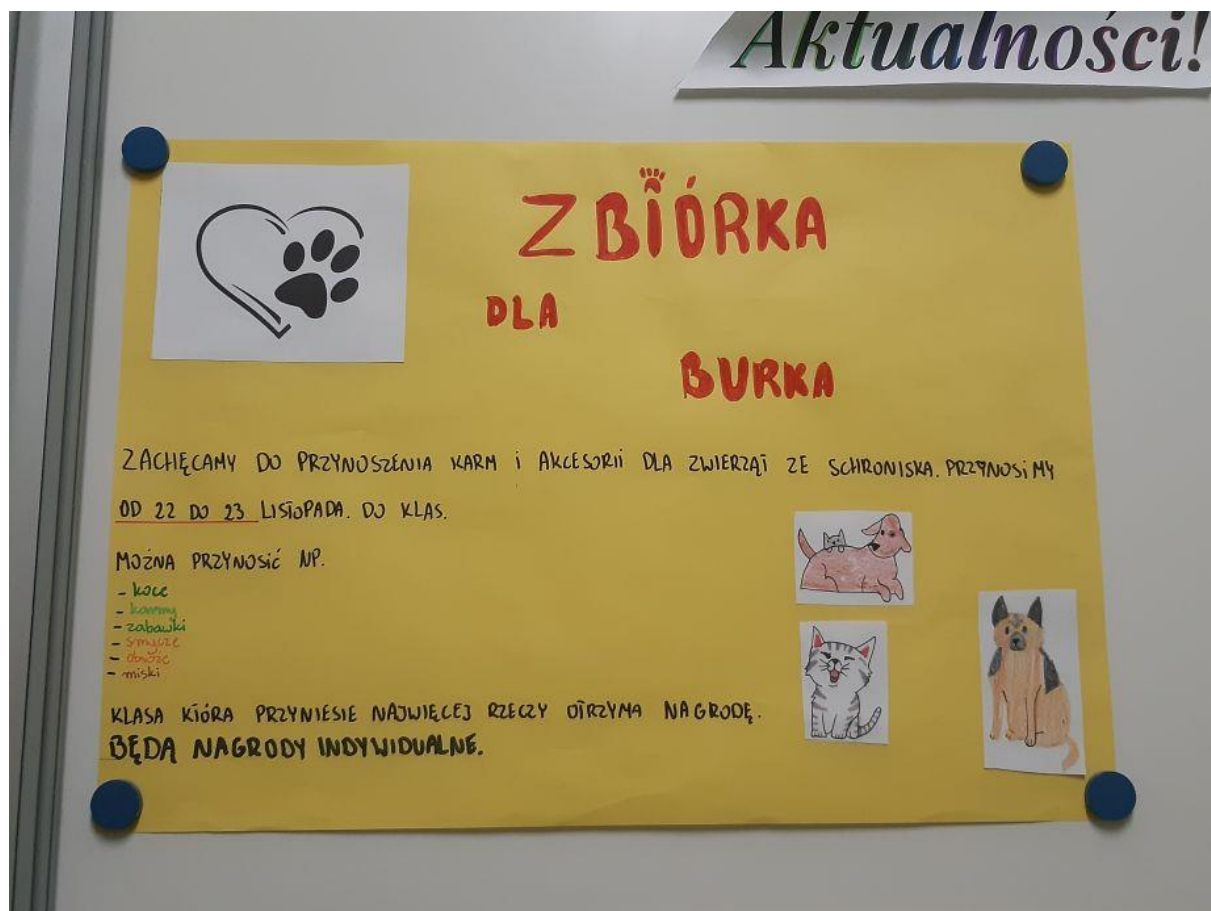 Aktualności!
ZBIÓRKA
DLA
BURKA
ZACHĘCAMY DO PRZYNOSZENIA KARM i AKCESORii DLA ZWIERZĄT ZE SCHRONISKA. PRZYNOSiMY
OD 22 DO 23 LISTOPADA. DO KLAS.
MOŻNA PRZYNOSić NP.
- koce
- karmy
- zabawki
- smycze
- obroże
- miski
KLASA KTÓRA PRZYNIESIE NAJWIĘCEJ RZECZY OTRZYMA NAGRODĘ.
BĘDĄ NAGRODY INDYWIDUALNE.